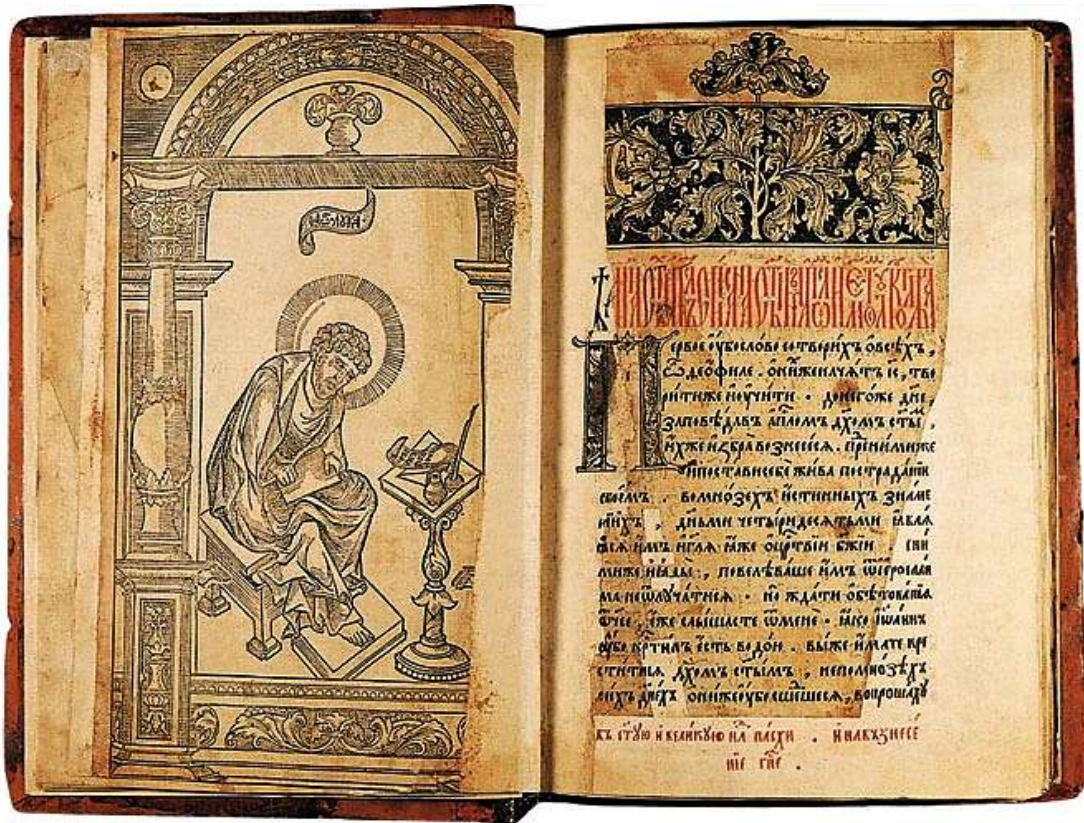 Первое ѹбо слово сотворихъ о всѣхъ,
ѽ Ѳеофиле. о нихже начатъ І҃с, тво
рити же и учити. до негоже дне,
заповѣдавъ ап҃лом дх҃омъ ст҃ы,
ихже избра вознесеся. пред ними же
и постави себе жива по страдании
своемъ. во мнозехъ истинныхъ знаме
ниихъ, деньми четыридесятьми
имъ и гл҃я яже о цр҃твии бж҃ии. с ни
ми же и яды, повелѣваше имъ ѿ Иерⷭ҇лима
не ѿлучатися. но ждати обѣтования
ѿчее, еже слышасте ѿ мене. яко Иѡаннъ
убо кр҃тилъ есть водою. вы же имате кре
ститися дх҃омъ ст҃ымъ, не по мнозѣхъ
сихъ дн҃ехъ они же убо сшедшеся, вопрошаху
въ ст҃ую и великую нл҃ю пасхи. и на възнесе
ние гн҃е.